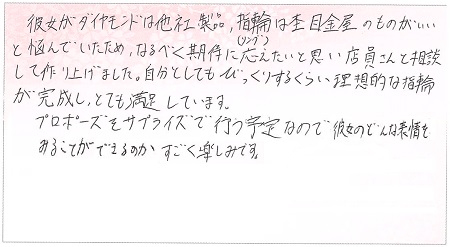 彼女がダイヤモンドは他社製品,指輪は杢目金屋のものがいい
と悩んでいたため,なるべく期待に(リング)応えたいと思い店員さんと相談
して作り上げました。自分としてもびっくりするくらい理想的な指輪
が完成し,とても満足しています。
プロポーズをサプライズで行う予定なので彼女のどんな表情を
みることができるのかすごく楽しみです。